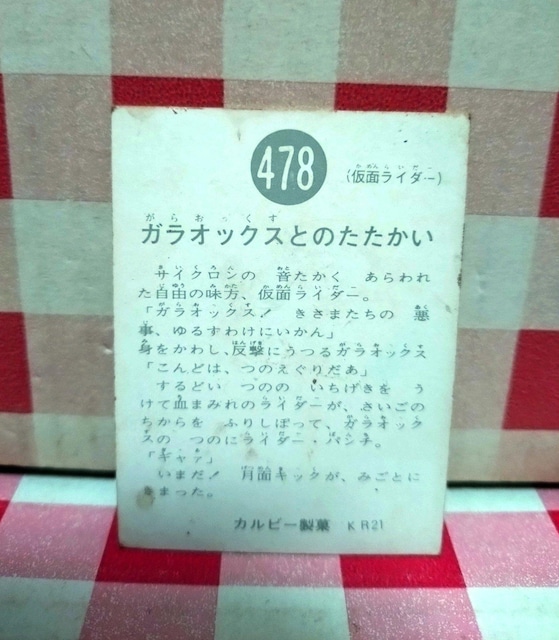 478
(仮面ライダー)
ガラオックスとのたたかい
サイクロンの 音たかく あらわれ
た自由の味方、仮面ライダー。
「ガラオックス! きさまたちの 悪
事、ゆるすわけにいかん」
身をかわし、反撃にうつるガラオックス
「こんどは、つのえぐりだあ」
するどい つのの いちげきを う
けて血まみれのライダーが、さいごの
ちからを ふりしぼって、ガラオック
スの つのにライダー・パンチ。
「ギャァ」
いまだ! 月面キックが、みごとに
きまった。
カルビー製菓 KR21